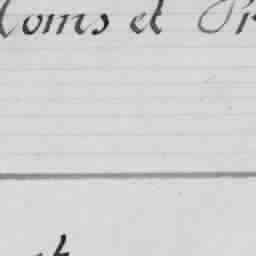 Noms et Pr